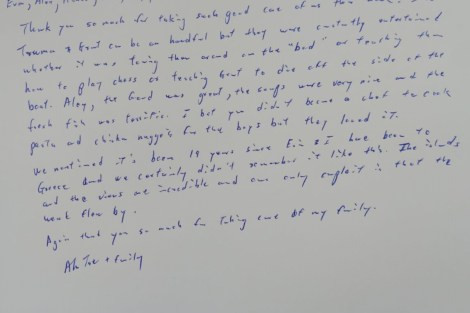 Thank you so much for taking such good care of me this
& Grant can be an handful but they were constantly entertained
whether it was towing them around on the "bed" or teaching them
how to play chess or teaching Grant to dive off the side of the
boat. Alex, the food was good, the soups were very nice and the
fresh fish was terrific. I bet you didn't become a chef to cook
pasta and chicken nuggets for the boys but they loved it.
We mentioned it's been 19 years since Erin & I have been to
Greece and we certainly didn't remember it like this. The islands
and the views are incredible and our only complaint is that the
week flew by.
Again thank you so much for taking care of my family.
+ family